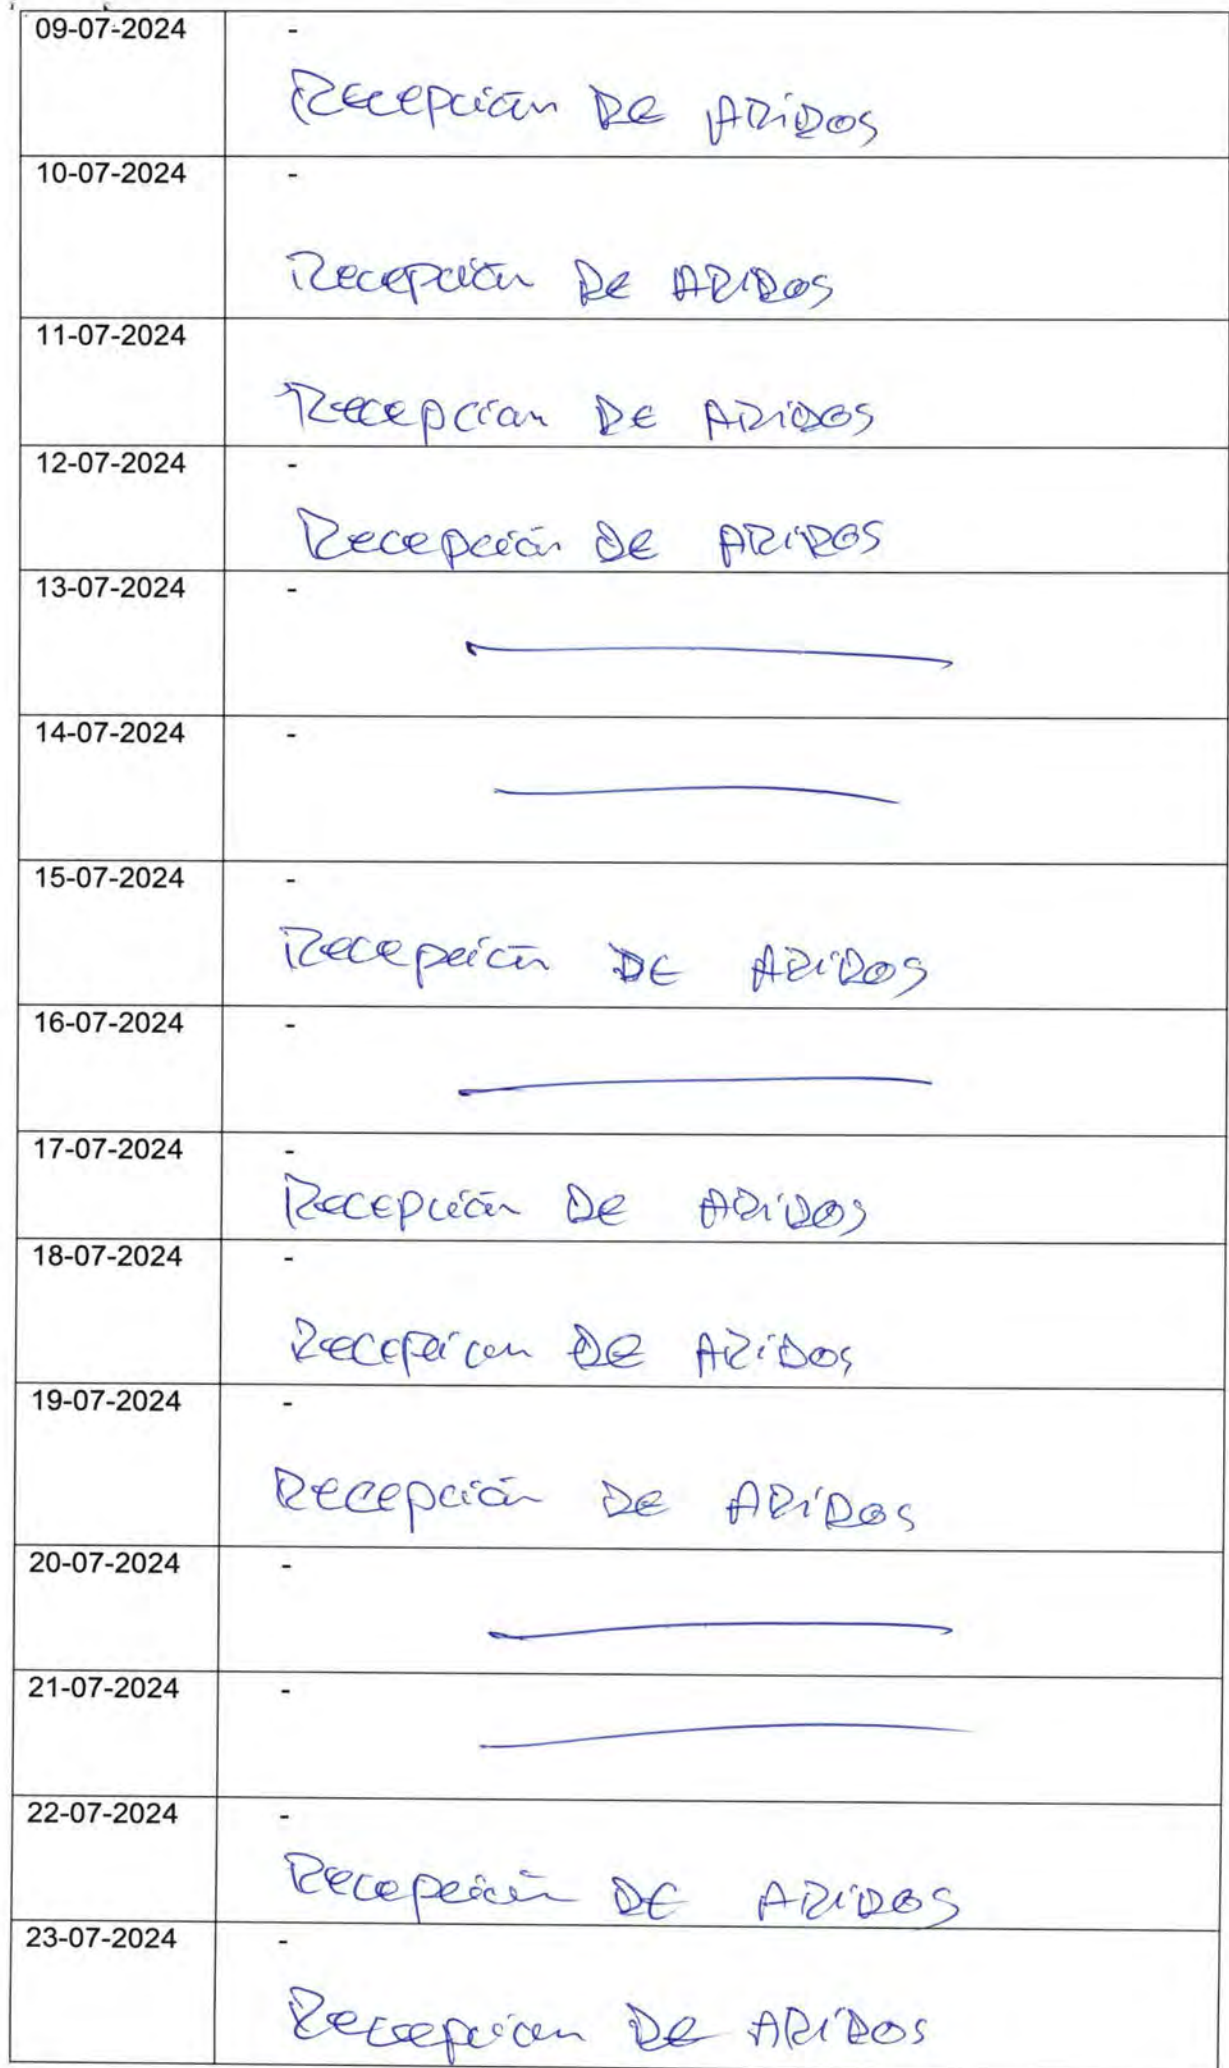 09-07-2024 -
Recepción DE ARiDOS
10-07-2024 -
Recepción De ARIDOS
11-07-2024
Recepcian DE ARiDOS
12-07-2024 -
Recepción DE ARiDOS
13-07-2024 -
14-07-2024 -
15-07-2024 -
Recepción DE ARiDOS
16-07-2024 -
17-07-2024 -
RecEpción De ARiDOS
18-07-2024 -
Recepcion DE ARiDOS
19-07-2024 -
Recepción De ARiDOS
20-07-2024 -
21-07-2024 -
22-07-2024 -
Recepción DE ARiDOS
23-07-2024 -
Recepcion De ARiDOS